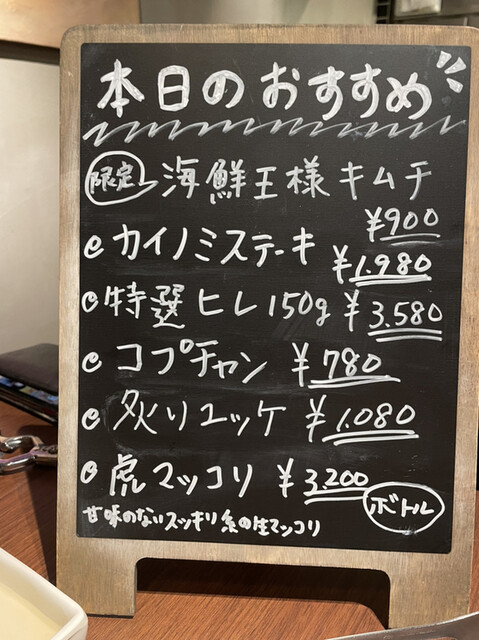 本日のおすすめ
限定 海鮮王様キムチ
¥900
カイノミステーキ
¥1.980
特選ヒレ150g ¥3.580
コプチャン ¥780
炙りユッケ ¥1.080
虎マッコリ ¥3200
ボトル
甘味のないスッキリ系の生マッコリ